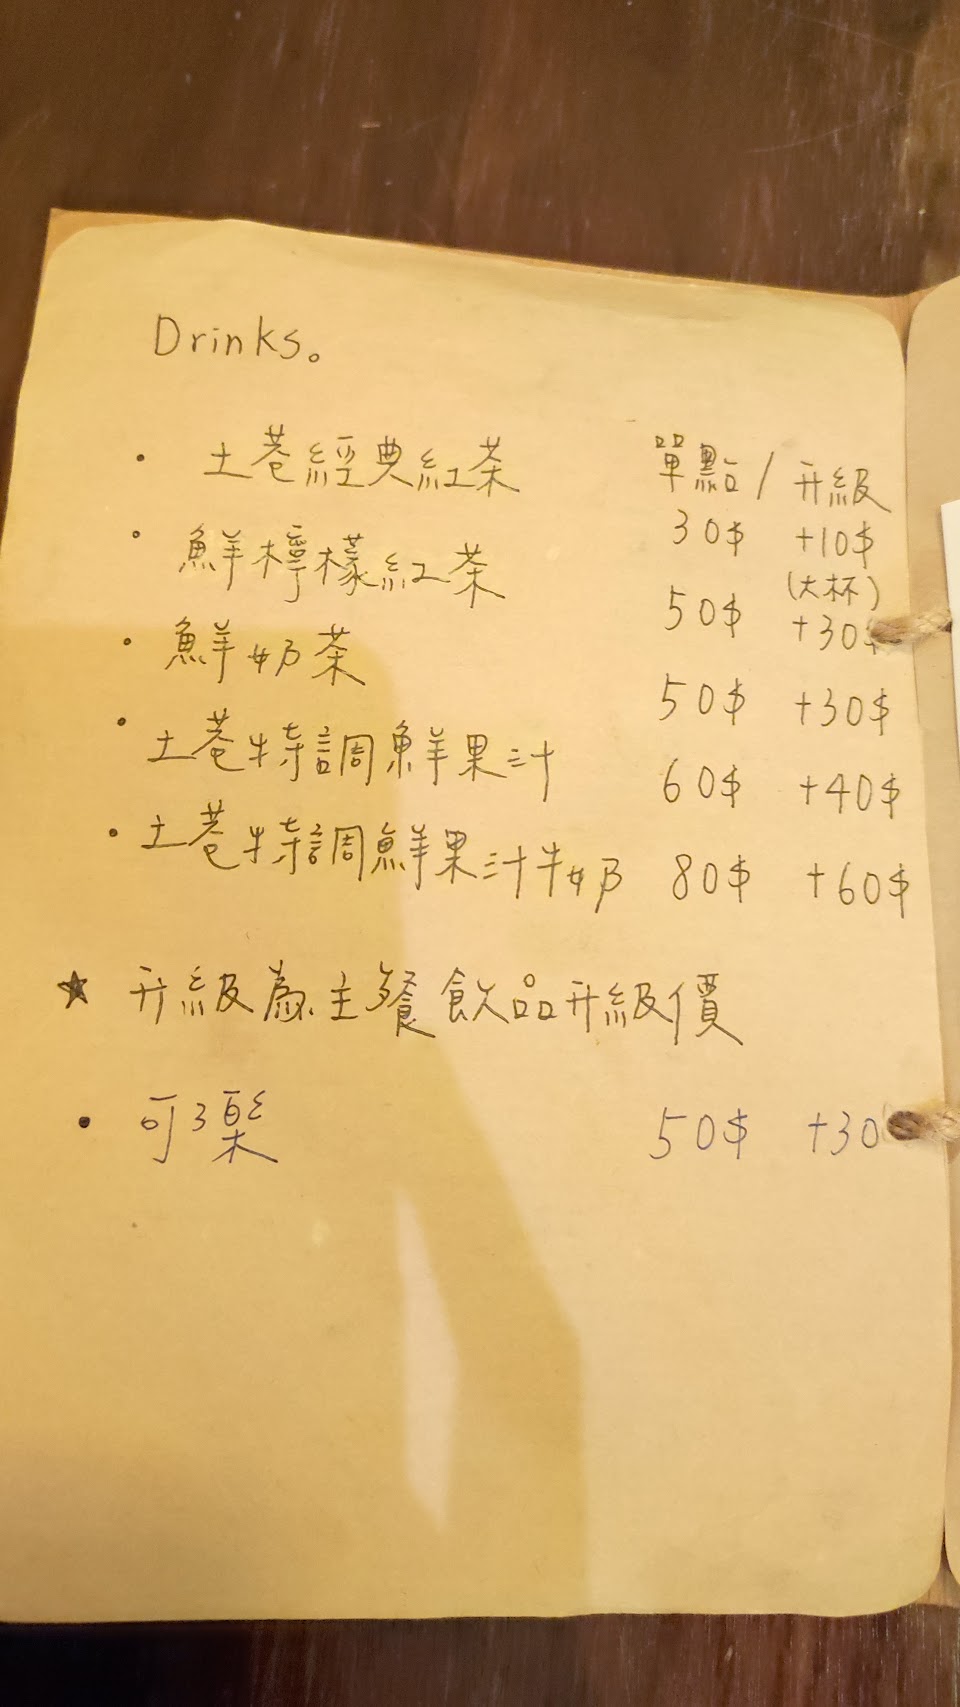 Drinks。
單點 / 升級
• 土巷經典紅茶 30$ +10$
(大杯)
• 鮮檸檬紅茶 50$ +30$
• 鮮奶茶 50$ +30$
• 土巷特調鮮果汁 60$ +40$
• 土巷特調鮮果汁牛奶 80$ +60$
★ 升級為主餐飲品升級價
• 可樂 50$ +30